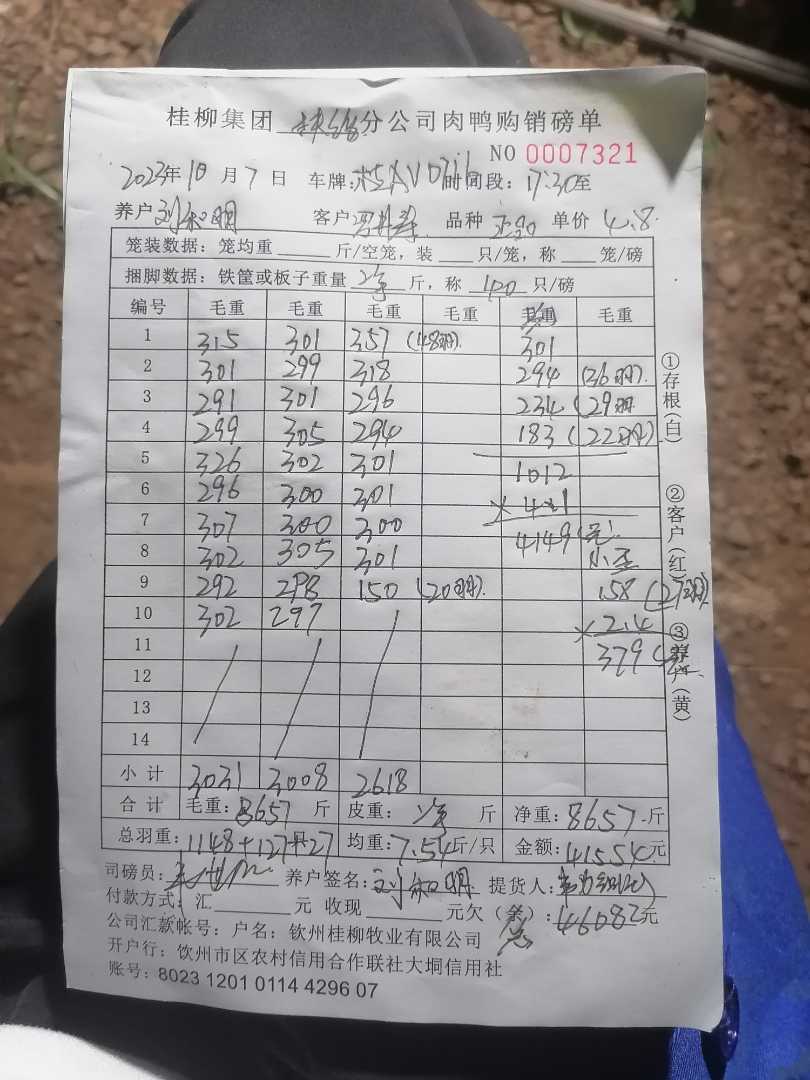 桂柳集团 分公司肉鸭购销磅单
NO 0007321
2023年10月7日 车牌: 时间段: 17:30至
养户 刘和明 客户 品种 单价 4.8
笼装数据: 笼均重 斤/空笼, 装 只/笼, 称 笼/磅
捆脚数据: 铁筐或板子重量 净 斤, 称 40 只/磅
编号 毛重 毛重 毛重 毛重 毛重 毛重
1 315 301 357 (48羽). 301
2 301 299 318 294 (36羽).
3 291 301 296 234 (29羽
4 299 305 294 183 (22羽)
5 326 302 301 1012
6 296 300 301 × 4.1
7 307 300 300 4149 (元).
8 302 305 301
9 292 298 150 (20羽). 158 (27羽)
10 302 297 × 2.4
11 379
12
13
14
小计 3031 3008 2618
合计 毛重: 8657 斤 皮重: 净 斤 净重: 8657 斤
总羽重: 1148+127+27 均重: 7.54斤/只 金额: 41554元
司磅员: 养户签名: 刘和明 提货人:
付款方式: 汇 元 收现 元欠(条): 46082元
公司汇款帐号: 户名: 钦州桂柳牧业有限公司
开户行: 钦州市区农村信用合作联社大垌信用社
账号: 8023 1201 0114 4296 07
①存根(白)
②客户(红)
③养户(黄)